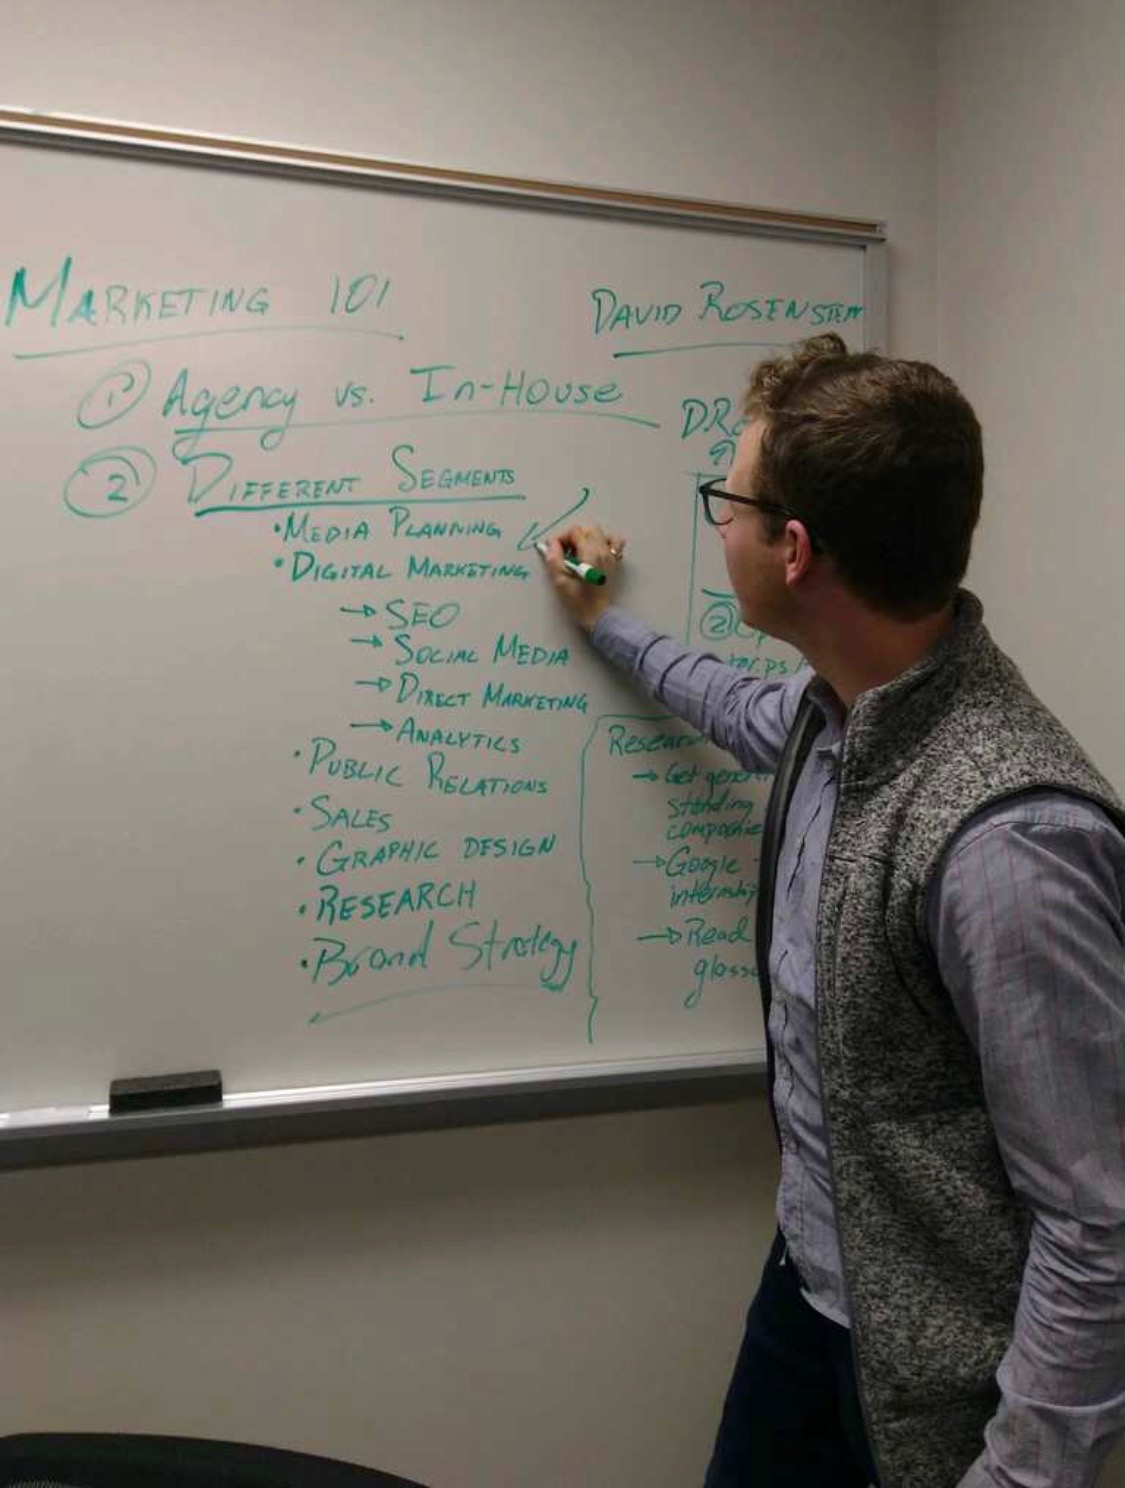 MARKETING 101
DAVID ROSENSTEIN
① Agency vs. In-House
② DIFFERENT SEGMENTS
• MEDIA PLANNING
• DIGITAL MARKETING
→ SEO
→ SOCIAL MEDIA
→ DIRECT MARKETING
→ ANALYTICS
• PUBLIC RELATIONS
• SALES
• GRAPHIC DESIGN
• RESEARCH
• Brand Strategy
②
→ Get
standing
→ Google
→ Read